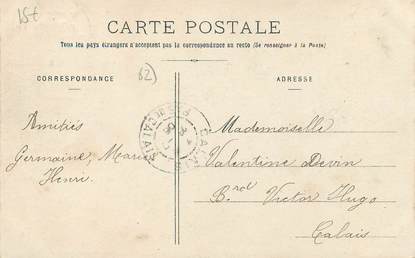 15t
CARTE POSTALE
Tous les pays étrangers n'acceptent pas la correspondance au recto (Se renseigner à la Poste)
CORRESPONDANCE
62
ADRESSE
Amitiés
Germaine, Marie
Henri.
CALAIS
PAS-DE-CALAIS
Mademoiselle
Valentine Devin
B.rd Victor Hugo
Calais